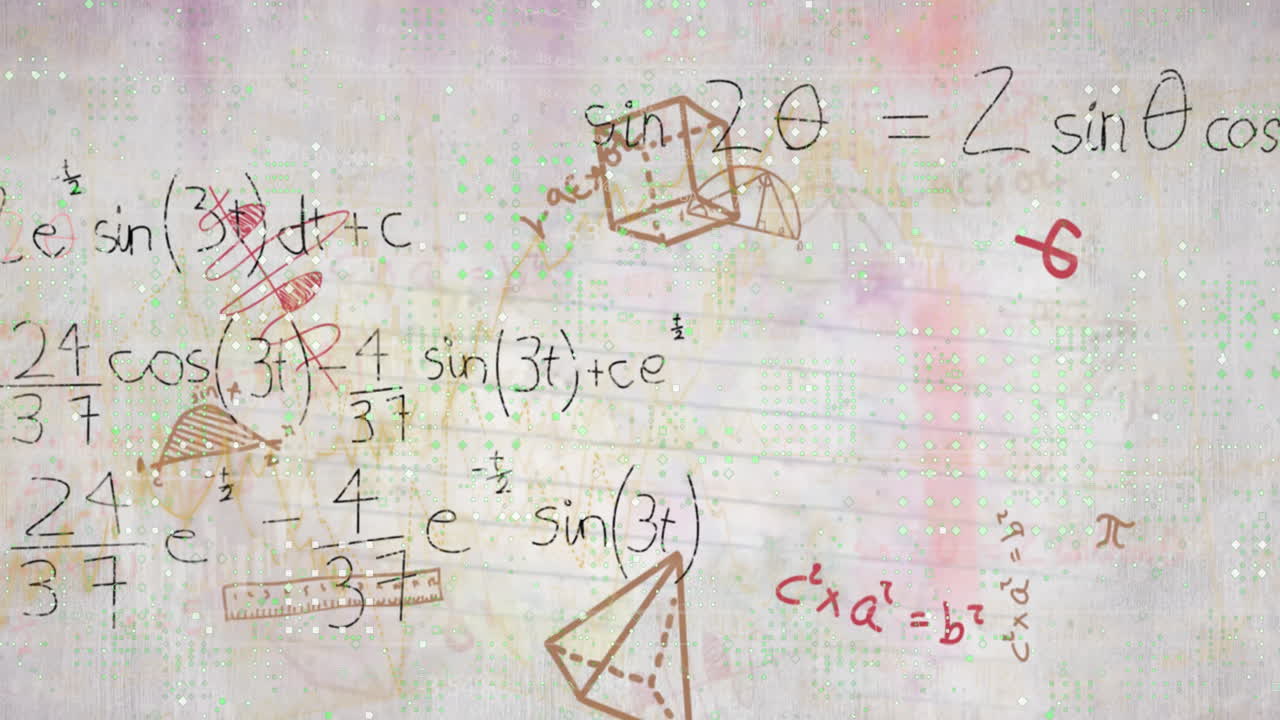 sin 2θ = 2 sinθ cos
e^t/2 sin(3t)dt+c
-6
24/37 cos(3t) - 4/37 sin(3t)+ce^t/2
24/37 e^-t/2 - 4/37 e^-t/2 sin(3t)
c²xa²=b²
c²xa²=b²
π